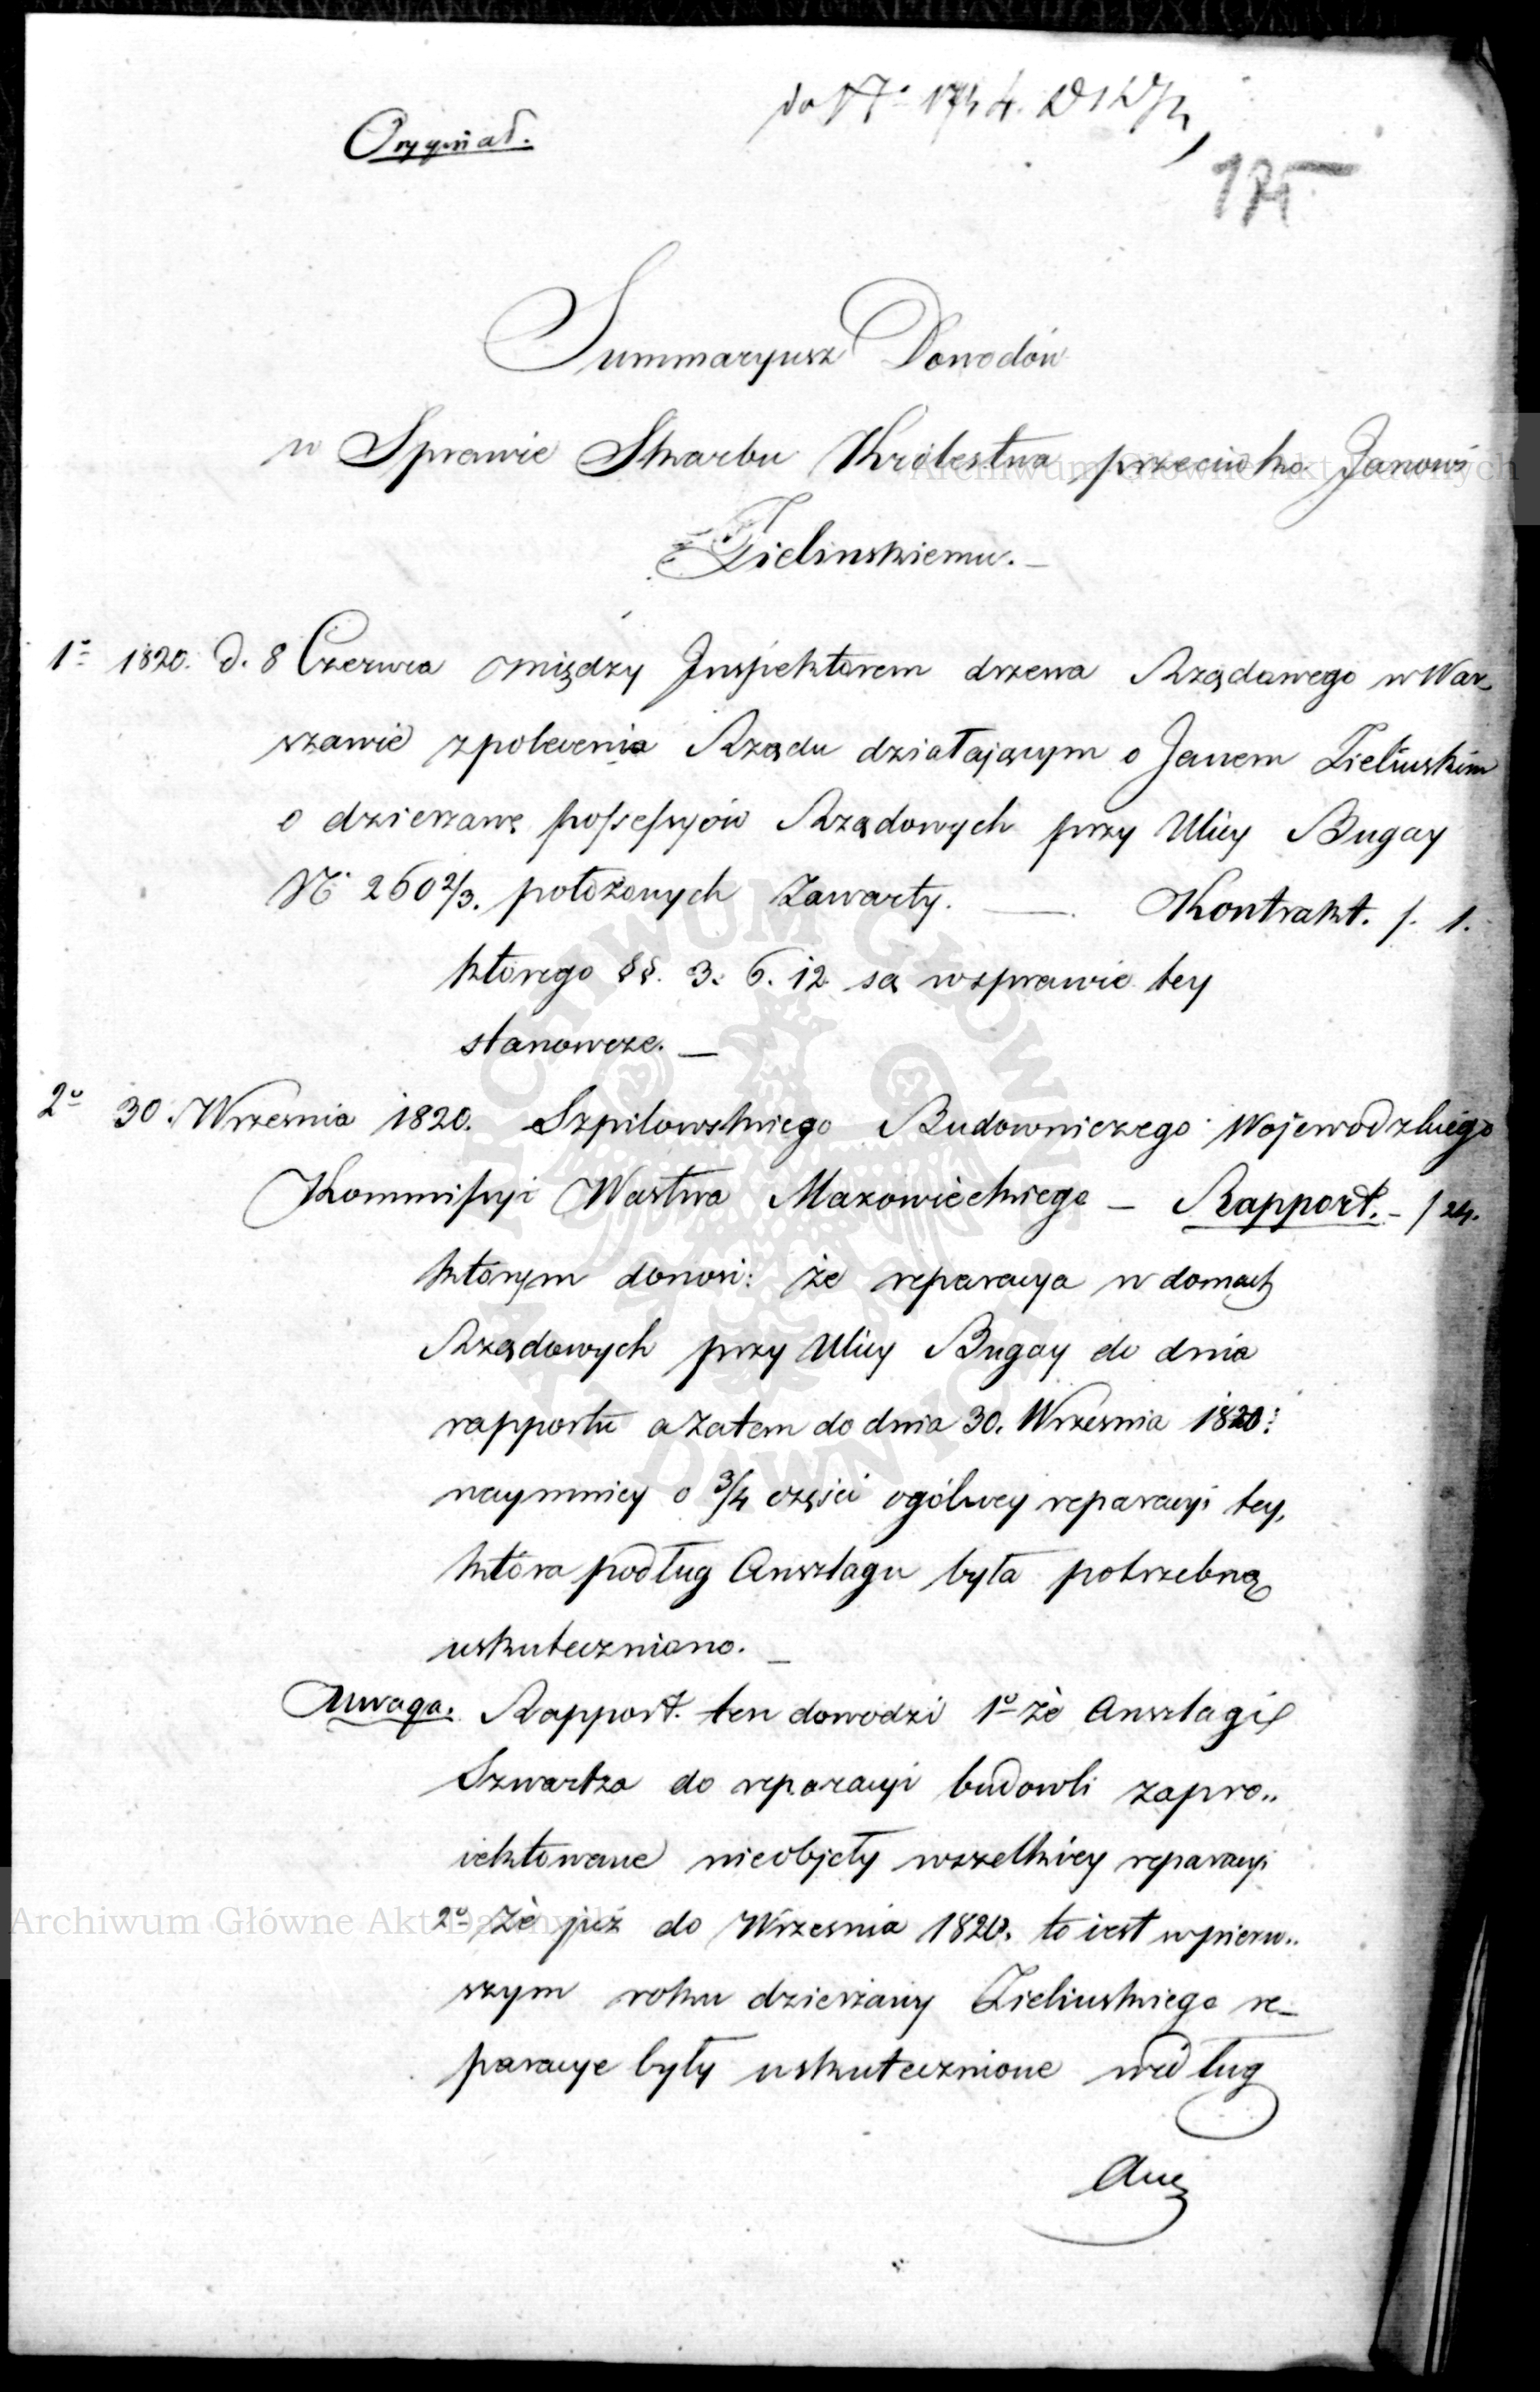 Oryginał.
do No
175
Summaryusz Dowodów
w Sprawie Skarbu Królestwa przeciwko Janowi
Zielinskiemu. _
1o 1820. d. 8 Czerwca między Inspektorem drzewa Rządowego w War-
szawie z polecenia Rządu działającym o Janem Zielinskim
o dzierzawę possessyów Rządowych przy Ulicy Bugay
No 260 2/3. położonych zawarty. — Kontrakt. f. 1.
którego §§. 3. 6. 12 są w sprawie tey
stanowcze. _
2o 30. Wrzesnia 1820. Szpilowskiego Budowniczego Wojewodzkiego
Kommissyi Wastwa Mazowieckiego – Rapport. – f 24.
którym donosi: że reparacya w domach
Rządowych przy Ulicy Bugay do dnia
rapportu a zatem do dnia 30. Wrzesnia 1820:
naymniey o 3/4 części ogólney reparacyi tey,
która podług Anszlagu była potrzebną
uskuteczniono. _
Uwaga. Rapport ten dowodzi 1o że Anszlagi
Szwartza do reparacyi budowli zapro„
iektowane nieobjęły wszelkiey reparacyi
2o że już do Wrzesnia 1820. to iest w pierw„
szym roku dzierżawy Zielinskiego re-
paracye były uskutecznione według
Ans
Archiwum Główne Akt Dawnych
Archiwum Główne Akt Dawnych
ARCHIWUM GŁÓWNE AKT DAWNYCH